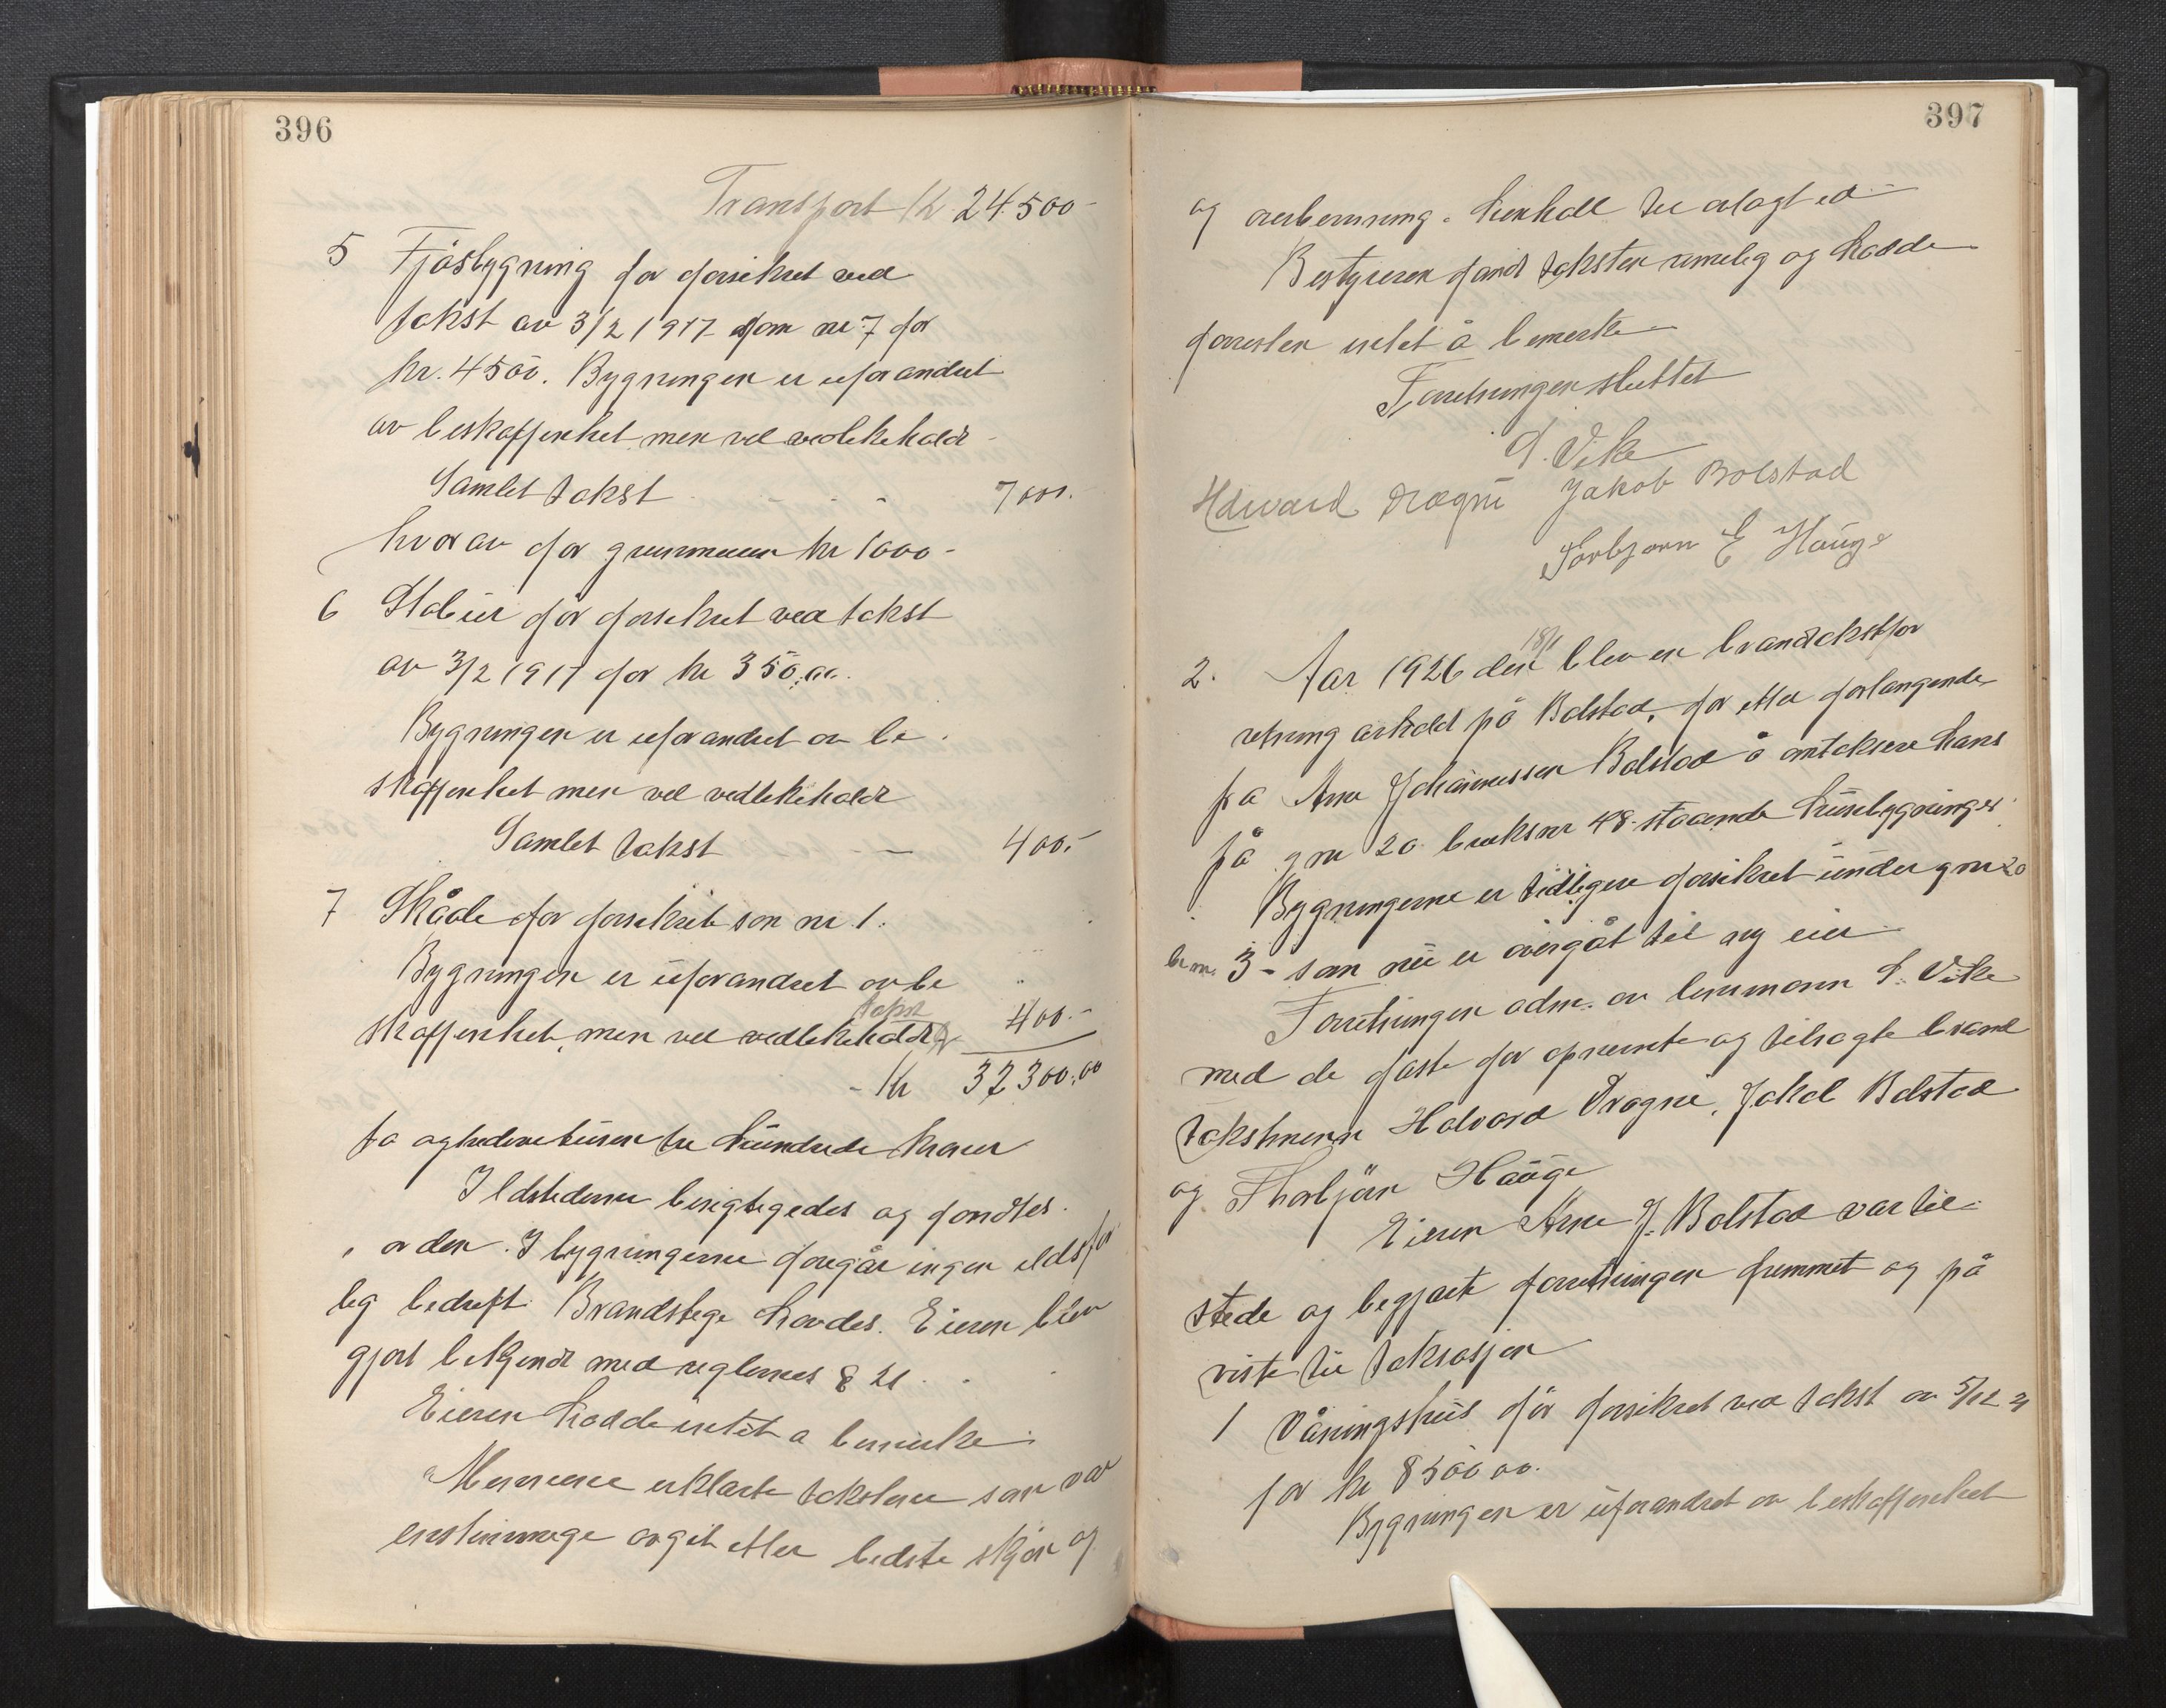 396
Transport Kr 24500-
5 Fjøsbygning før forsikret ved
takst av 3/2 1917 som nr 7 for
kr. 4500. Bygningen er uforandret
av beskaffenhet men vel vedlikeholdt
Samlet takst - - - 7000.
hvorav for grunmuren kr 1000-
6 Stabur før forsikret ved takst
av 3/2 1917 for kr 350.00.
Bygningen er uforandret av be
skaffenhet men vel vedlikeholdt
Samlet takst - - 400.-
7 Skåle før forsikret som nr 1.
Bygningen er uforandret av be
skaffenhet men vel vedlikeholdt takst 400.-
- Kr 32300.00
to og tredvetusen tre hundrede kroner
Ildstederne besigtigedes og fandtes
i orden. I bygningerne foregår ingen ildsfar
lig bedrift. Brandstige havdes. Eieren blev
gjort bekjendt med reglernes § 21.
Eieren hadde intet a bemerke.
Mennene erklærte taksterne som var
enstimmige avgit etter bedste skjøn og
397
og overbevisning i henhold til avlagt ed-
Bestyreren fandt taksten rimelig og hadde
forresten intet å bemerke-
Forretningen sluttet
Vike
Halvard Dragne Jakob Bolstad
Torbjørn E Hauge
2. Aar 1926 den 18/1 blev en brandtakstfor
retning avholdt på Bolstad, for etter forlangende
fra Arne Johannessen Bolstad å omtaksere hans
på gnr 20 bruksnr 48 staaende husebygninger
Bygningerne er tidligere forsikret under gnr 20
br.nr. 3 - som nu er overgåt til ny eier
Forretningen adm. av lensmann Vike
med de faste før opnevnte og tilsagte brand
takstmenn Halvard Dragne, Jakob Bolstad
og Thorbjørn Hauge
Eieren Arne J. Bolstad var til-
stede og begjærte forretningen fremmet og på
viste til taksasjon
1 Våningshus før forsikret ved takst av 5/12 21
for kr 8500 00.
Bygningen er uforandret av beskaffenhet